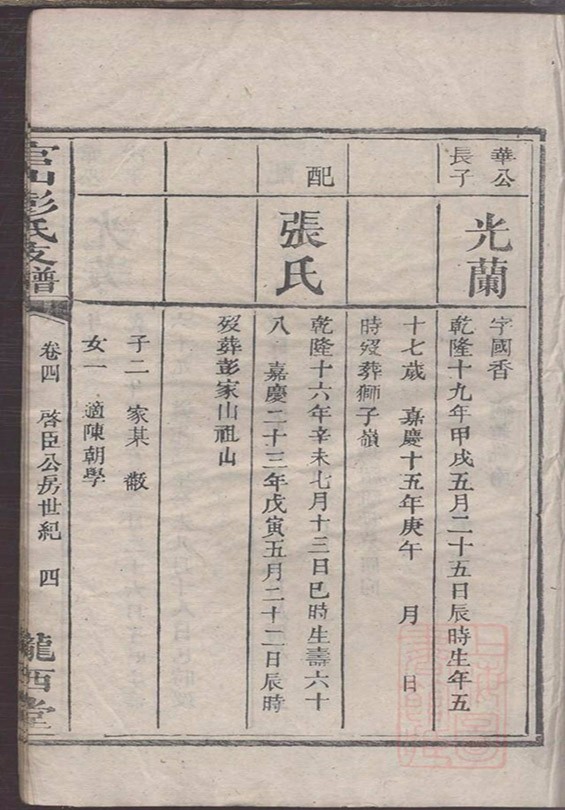 華公
長子
光蘭
字國香
乾隆十九年甲戌五月二十五日辰時生年五
十七歲 嘉慶十五年庚午 月 日
時歿葬獅子嶺
配
張氏
乾隆十六年辛未七月十三日巳時生壽六十
八 嘉慶二十三年戊寅五月二十二日辰時
歿葬彭家山祖山
子二 家某 㪚
女一 適陳朝學
官山彭氏支譜
卷四 啓臣公房世紀 四
隴西堂